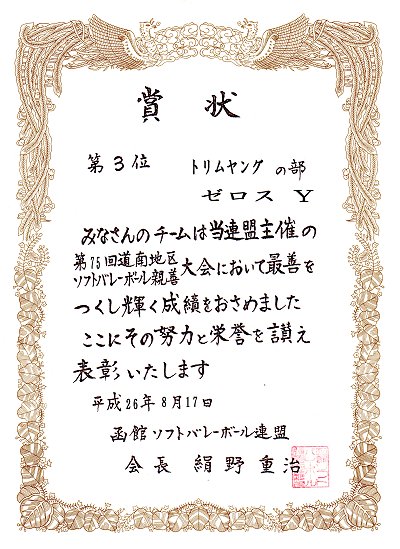 賞状
第3位 トリムヤングの部
ゼロス Y
みなさんのチームは当連盟主催の
第15回道南地区
ソフトバレーボール親善
大会において最善を
つくし輝く成績をおさめました
ここにその努力と栄誉を讃え
表彰いたします
平成26年8月17日
函館ソフトバレーボール連盟
会長 絹野重治